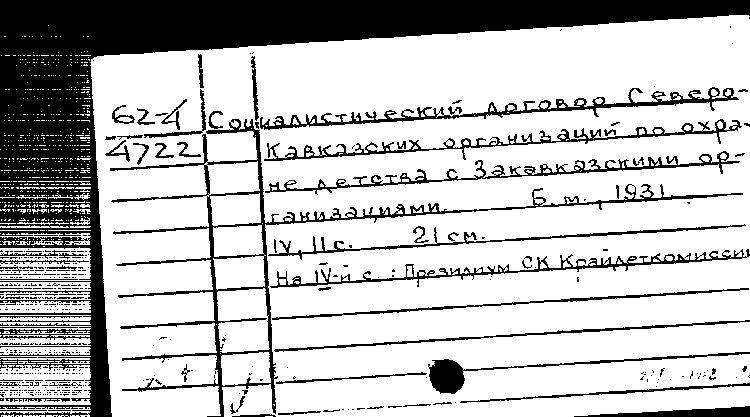 62-4 Социалистический договор Северо-
4722 Кавказских организаций по охра-
не детства с Закавказскими ор-
ганизациями. Б.м., 1931.
IV, 11 с. 21 см.
На IV-й с.: Президиум СК Крайдеткомиссии